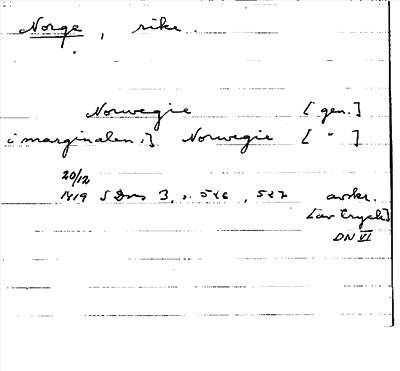 Norge, rike.
Norwegie [gen.]
i marginalen:] Norwegie [ " ]
20/12
1419 SDns 3, s. 526, 527 avskr.
[av tryck]
DN VI